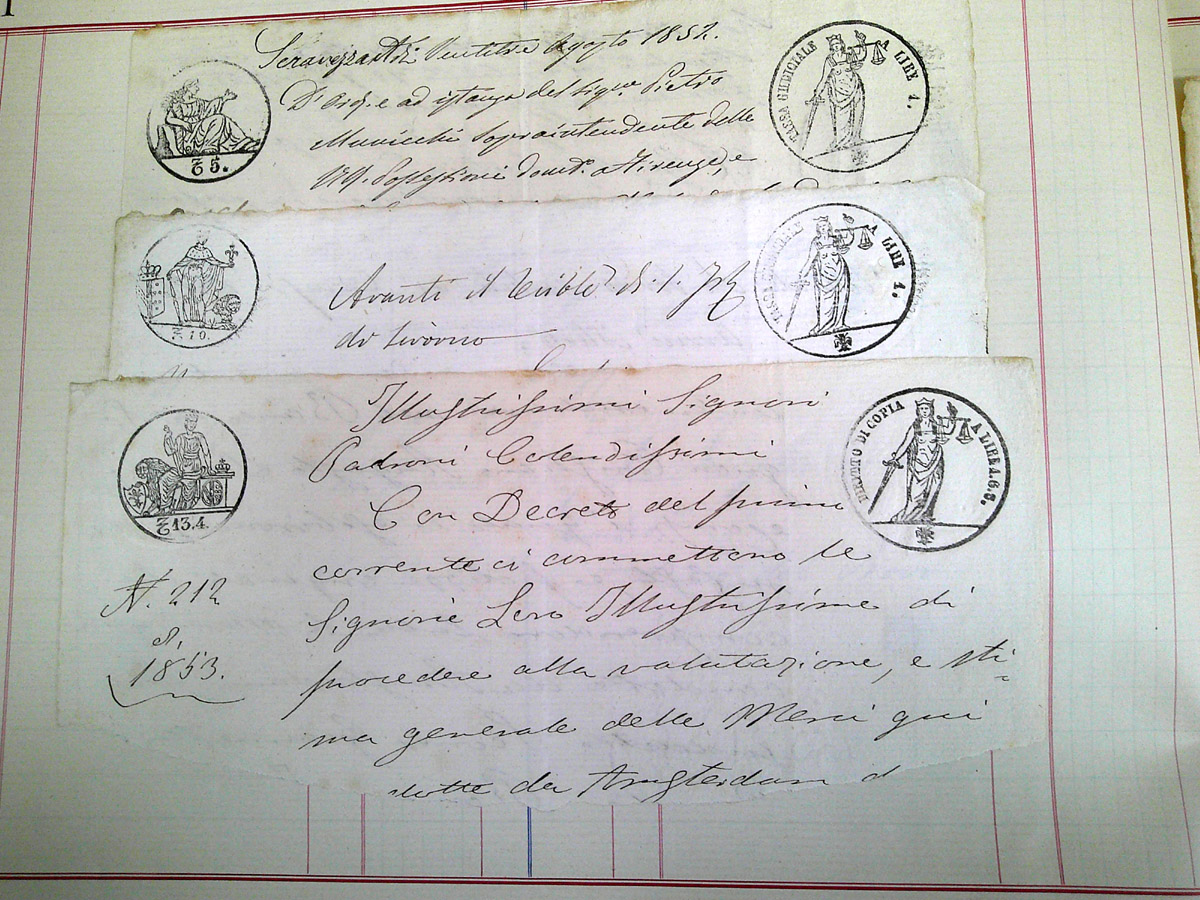 Seravezza li Ventitre Agosto 1852.
TASSA GIUDICIALE A LIRE 1.
D'ord.e e ad istanza del Sig.re Pietro
Municchi Sopraintendente delle
RR. Possessioni domt.o a Firenze, e
5.
Avanti il Trible di 1. Iza
di Livorno
TASSA GIUDICIALE A LIRE 1.
10.
Illustrissimi Signori
Padroni Colendissimi
DIRITTO DI COPIA A LIRE 1.6.8.
13.4.
Con Decreto del primo
corrente ci commettono le
N. 212
Signorie Loro Illustrissime di
d.
1853.
procedere alla valutazione, e sti-
ma generale delle Merci qui
dotte da Amsterdam d